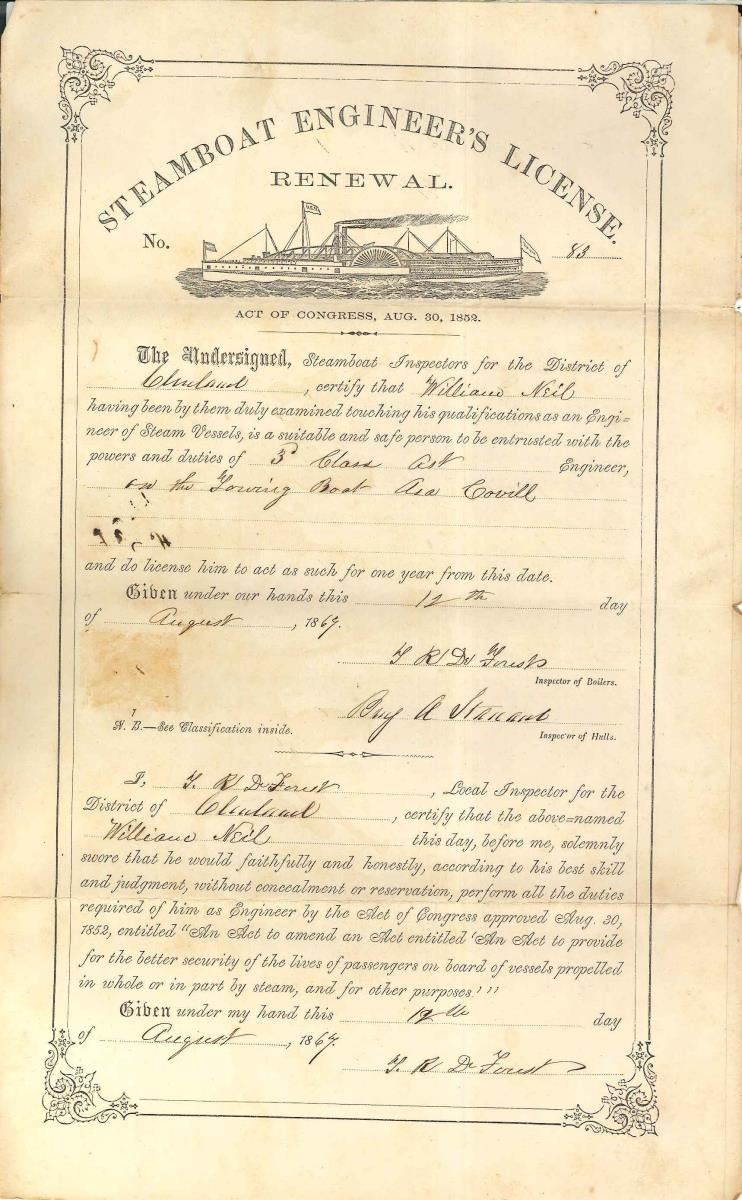 STEAMBOAT ENGINEER'S LICENSE.
RENEWAL.
No. 83
ACT OF CONGRESS, AUG. 30, 1852.
The Undersigned, Steamboat Inspectors for the District of
Cleveland, certify that William Neil
having been by them duly examined touching his qualifications as an Engi=
neer of Steam Vessels, is a suitable and safe person to be entrusted with the
powers and duties of 3d Class Ast Engineer,
on the Towing Boat Asa Covill
and do license him to act as such for one year from this date.
Given under our hands this 12th day
of August, 1867.
T R De Forest
Inspector of Boilers.
A
N. B.—See Classification inside.
Inspector of Hulls.
I, T. R De Forest, Local Inspector for the
District of Cleveland, certify that the above=named
William Neil this day, before me, solemnly
swore that he would faithfully and honestly, according to his best skill
and judgment, without concealment or reservation, perform all the duties
required of him as Engineer by the Act of Congress approved Aug. 30,
1852, entitled "An Act to amend an Act entitled 'An Act to provide
for the better security of the lives of passengers on board of vessels propelled
in whole or in part by steam, and for other purposes.'"
Given under my hand this 12th day
of August, 1867.
T. R De Forest